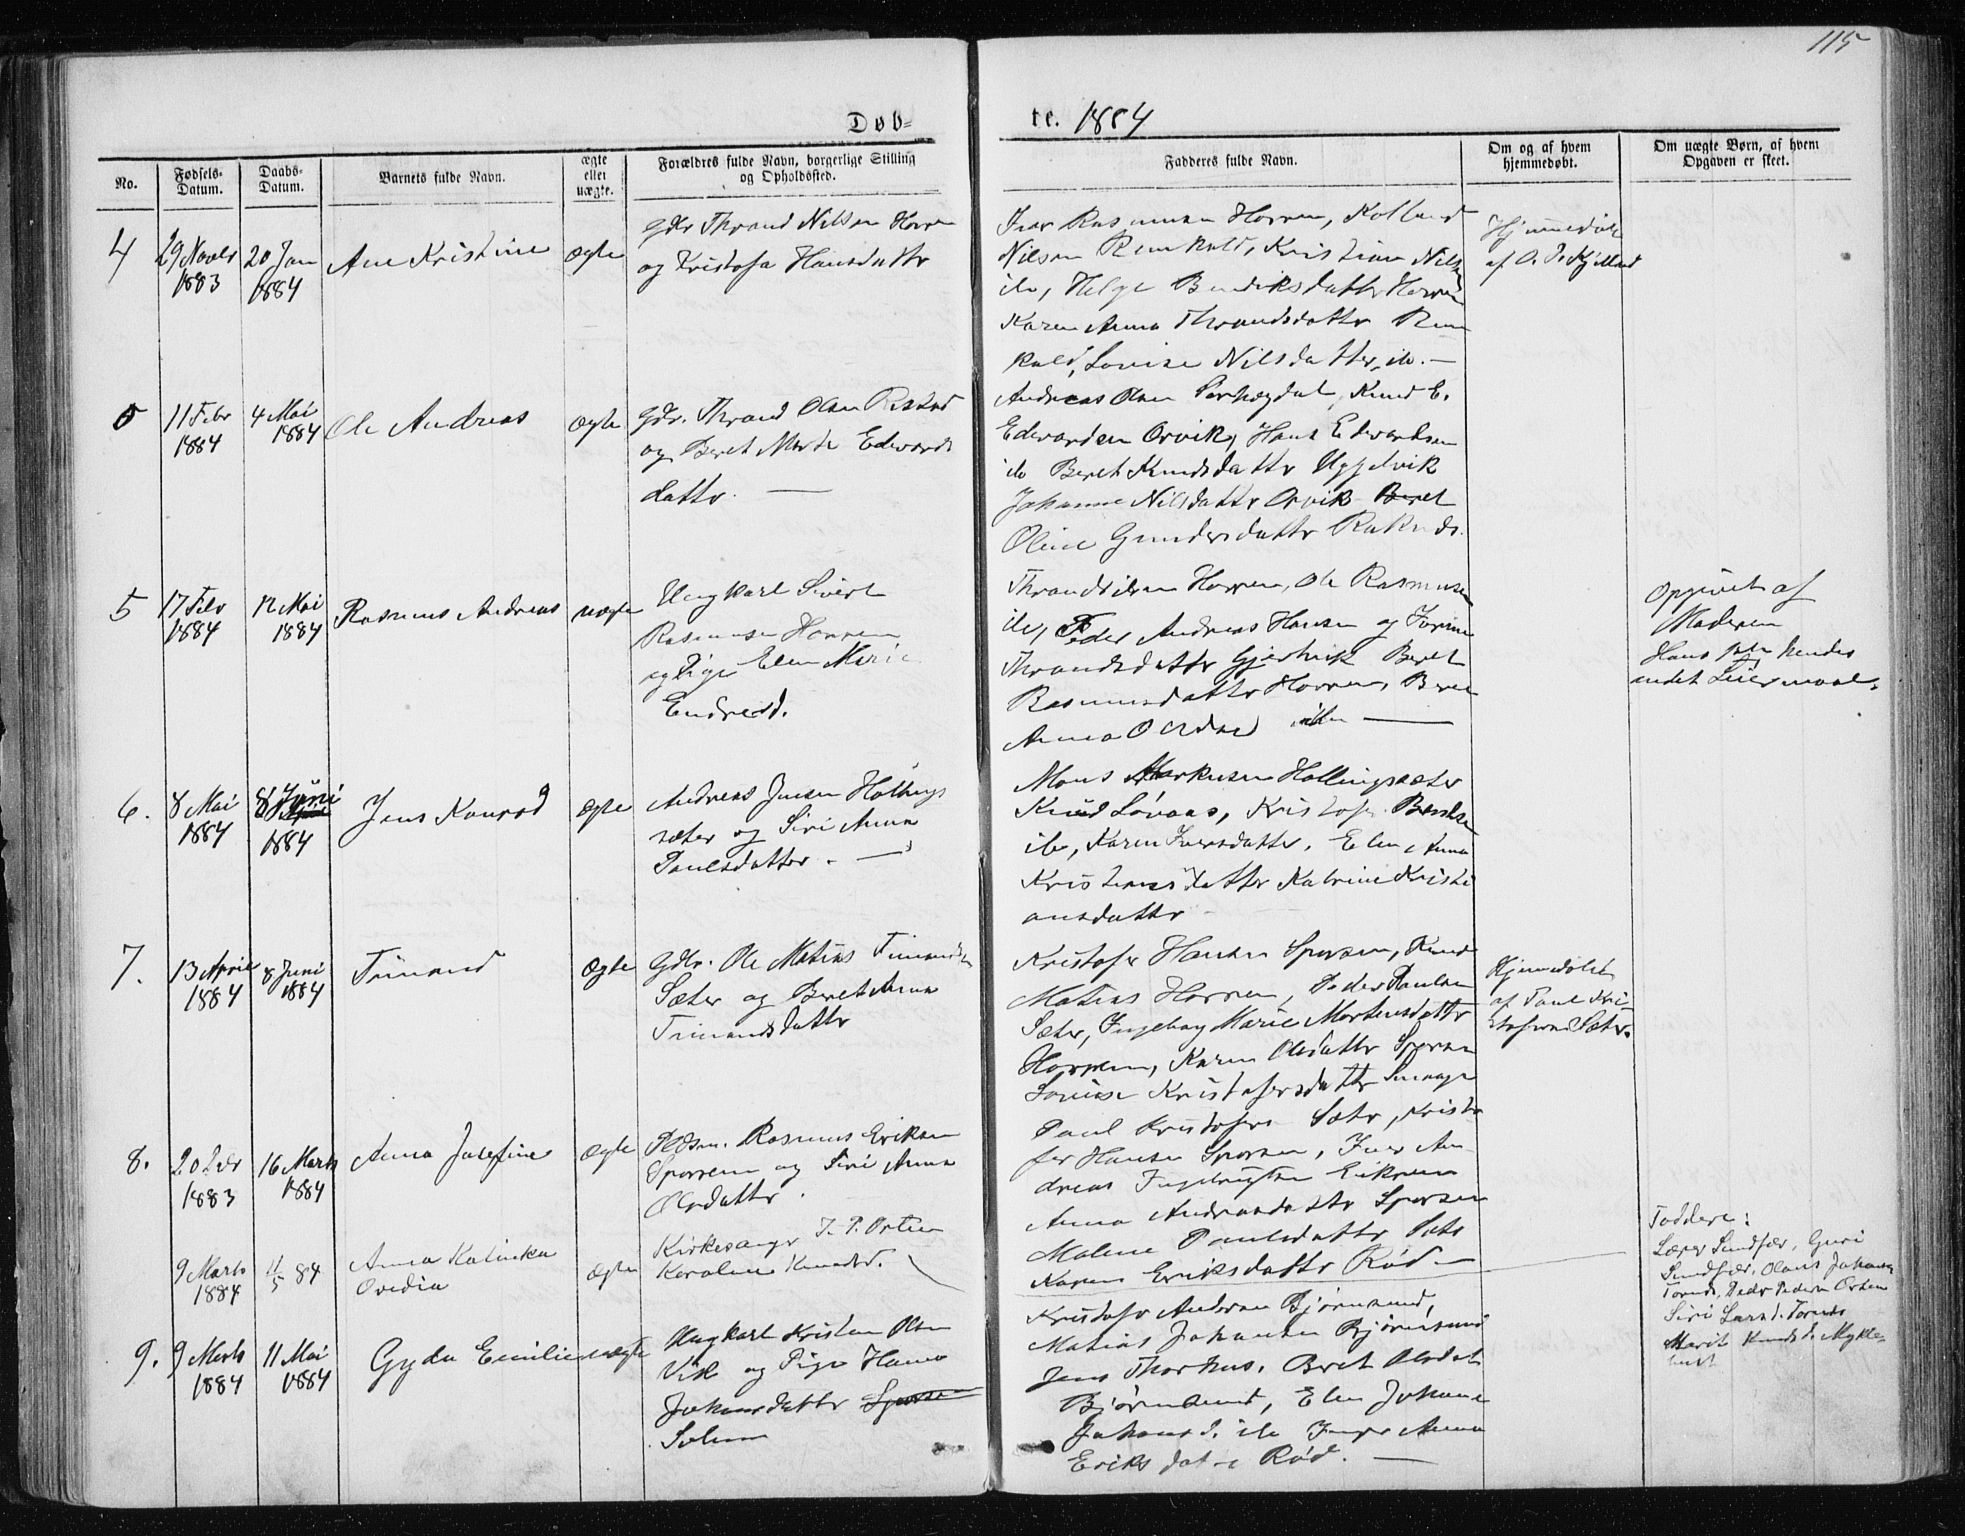 115
Døb-
te. 1884
No.
Fødsels-
Datum.
Daabs-
Datum.
Barnets fulde Navn.
ægte
eller
uægte.
Forældres fulde Navn, borgerlige Stilling
og Opholdssted.
Fadderes fulde Navn.
Om og af hvem
hjemmedøbt.
Om uægte Børn, af hvem
Opgaven er skeet.
4
29 Novbr
1883
20 Jan
1884
Ane Kristine
ægte
Gdr Thrand Nilsen Horrem
og Kristofa Hansdattr
Iver Rasmusen Horrem, Kolland
Nilsen Remkald, Kristian Nils
ib, Helge Bendiksdatter Horrem
Karen Anna Thrandsdattr Rem
kald, Lovise Nilsdatter, ib. —
Hjemmedøbt
af O. P. Kjelland
5
11 Febr
1884
4 Mai
1884
Ole Andreas
ægte
Gdr. Thrand Olsen
og Beret Marta Edwards
dattr. —
Andreas Olsen Knud E.
Edwardsen Orvik, Hans Edwardsen
ib Beret Knudsdattr Uggelvik
Johanne Nilsdattr Orvik Beret
Oline Gundersdattr
5
17 Febr
1884
12 Mai
1884
Rasmus Andreas
uægte
Ungkarl Sivert
Rasmusen Horrem
og Pige Elen Marie
Endresd.
Horrem, Ole Rasmusen
ib, Peder Andreas Hansen og
Thrandsdattr Gjershvik Beret
Rasmusdattr Horrem, Beret
Anna Olsdtr ib —
Opgivet af
Moderen
Hans hendes
andet Leiermaal.
6.
8 Mai
1884
8 Juni
1884
Jens Konrad
ægte
Andreas Jensen Hollings
sæter og Siri Anna
Paulsdatter. —
Mons Markusen Hollingsæter
Knud Løvaas, Kristofer
ib, Karen Iversdatter, Elen Anna
Kristensdatter Katrine Kristi
ansdattr
7.
13 April
1884
8 Juni
1884
Trinand
ægte
Gdbr. Ole Matias Trinandsen
Sæter og Beret Anna
Trinandsdattr
Kristofer Hansen Sporsem, Knud
Matias Horrem, Peder Paulsen
Sæter, Ingeborg Marie Mortensdattr
Horrem, Karen Olsdattr Sporsem
Lovise Kristofersdattr Smaage
Hjemmedøbt
af Paul Kri
stofersen Sæter.
8.
20 Dcbr
1883
16 Marts
1884
Anna Josefine
ægte
Pldsm. Rasmus Eriksen
Sporsem og Siri Anna
Olsdattr.
Paul Kristofers Sætr, Kristo
fer Hansen Sporsem, Iver An
dreas Ingebrigtsen Eikrem
Anna Andreasdattr Sporsem
Malene Paulsdattr Sætr
Karen Eriksdattr Rød —
9 Marts
1884
11/5 84
Anna Katinka
Ovedia
ægte
Kirkesanger J. P. Orten
Karoline Knudsd.
Faddere:
Lærer Sundsfær, Guri
Sundsfær, Olaus Johansen
Tornes, Peder Pedersen Orten
Siri Larsd. Tornes
Marit Knudsd. Mykle
bust
9.
9 Marts
1884
11 Mai
1884
Gyda Emilie
uægte
Ungkarl Kristen Olsen
Vik og Pige Hanna
Johansdattr Sporsem
Solem
Kristofer Andersen Bjørnsund,
Matias Johansen Bjørnsund
Jens Thorhus. Beret Olsdat
Bjørnsund, Elen Johanne
Johansd. ib Inger Anna
Eriksdatr Rød. —